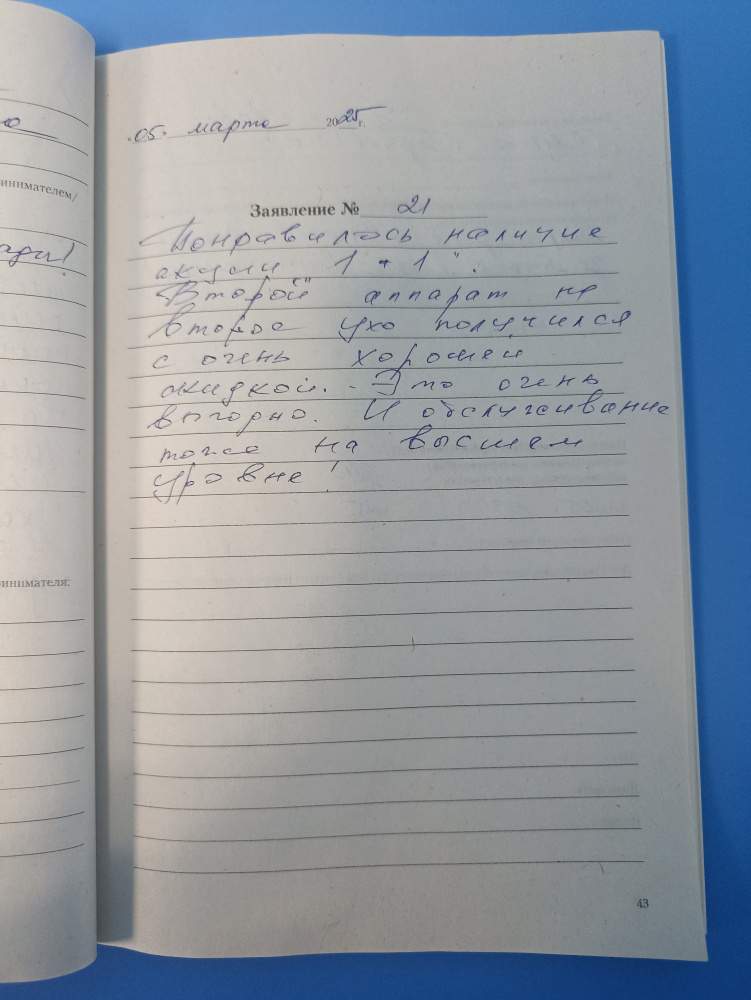 ю
инимателем/
ади!
инимателя:
«05» марта 2025 г.
Заявление № 21
Понравилось наличие
акции 1 + 1".
Второй" аппарат на
второе ухо получился
с очень хорошей
скидкой. - Это очень
выгодно. И обслуживание
тоже на высшем
уровне!
43